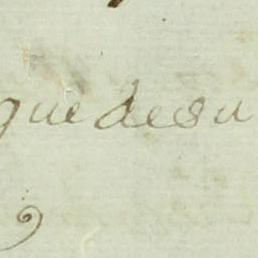 què de su